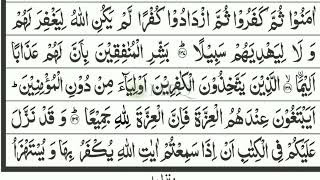 اٰمَنُوۡا ثُمَّ كَفَرُوۡا ثُمَّ ازۡدَادُوۡا كُفۡرًا لَّمۡ يَكُنِ اللّٰهُ لِيَغۡفِرَ لَهُمۡ
وَ لَا لِيَهۡدِيَهُمۡ سَبِيۡلًا ؕ﴿۱۳۷﴾ بَشِّرِ الۡمُنٰفِقِيۡنَ بِاَنَّ لَهُمۡ عَذَابًا
اَلِيۡمًا ۙ﴿۱۳۸﴾ الَّذِيۡنَ يَتَّخِذُوۡنَ الۡكٰفِرِيۡنَ اَوۡلِيَآءَ مِنۡ دُوۡنِ الۡمُؤۡمِنِيۡنَ ؕ
اَيَبۡتَغُوۡنَ عِنۡدَهُمُ الۡعِزَّةَ فَاِنَّ الۡعِزَّةَ لِلّٰهِ جَمِيۡعًا ؕ﴿۱۳۹﴾ وَ قَدۡ نَزَّلَ
عَلَيۡكُمۡ فِى الۡكِتٰبِ اَنۡ اِذَا سَمِعۡتُمۡ اٰيٰتِ اللّٰهِ يُكۡفَرُ بِهَا وَ يُسۡتَهۡزَاُ